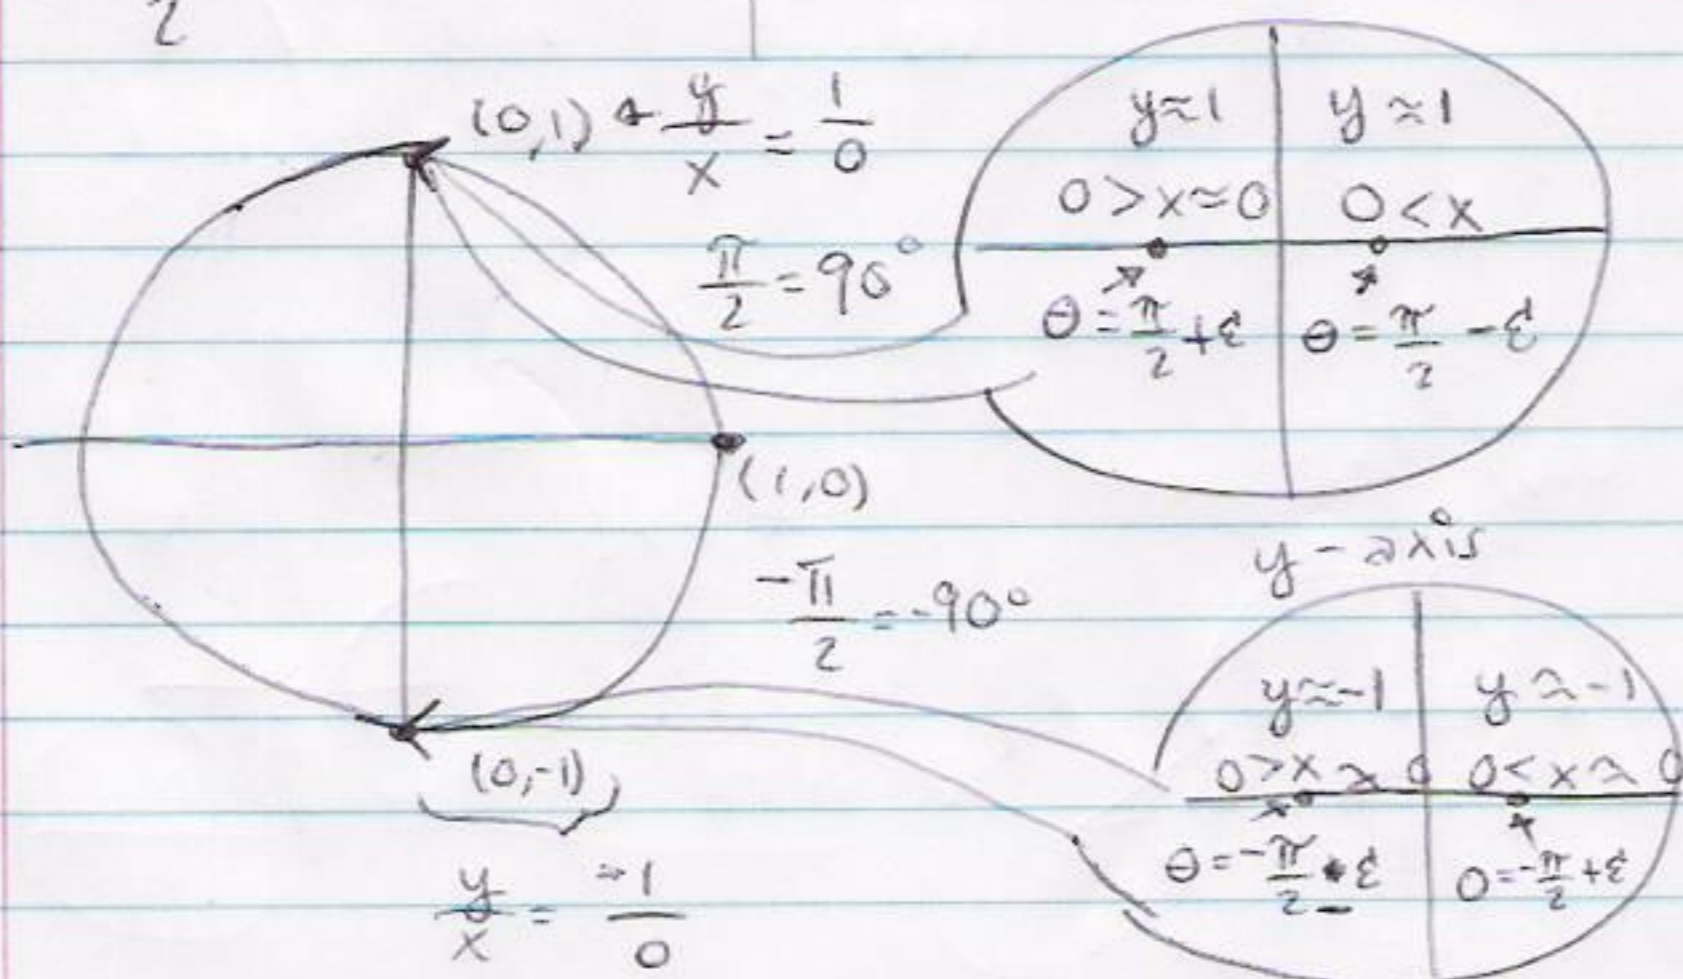 2
(0,1) ← y/x = 1/0
π/2 = 90°
y≈1
0>x≈0
θ = π/2 + ε
y≈1
0<x
θ = π/2 - ε
(1,0)
-π/2 = -90°
(0,-1)
y/x = -1/0
y-axis
y≈-1
0>x≈0
θ = -π/2 - ε
y≈-1
0<x≈0
θ = -π/2 + ε